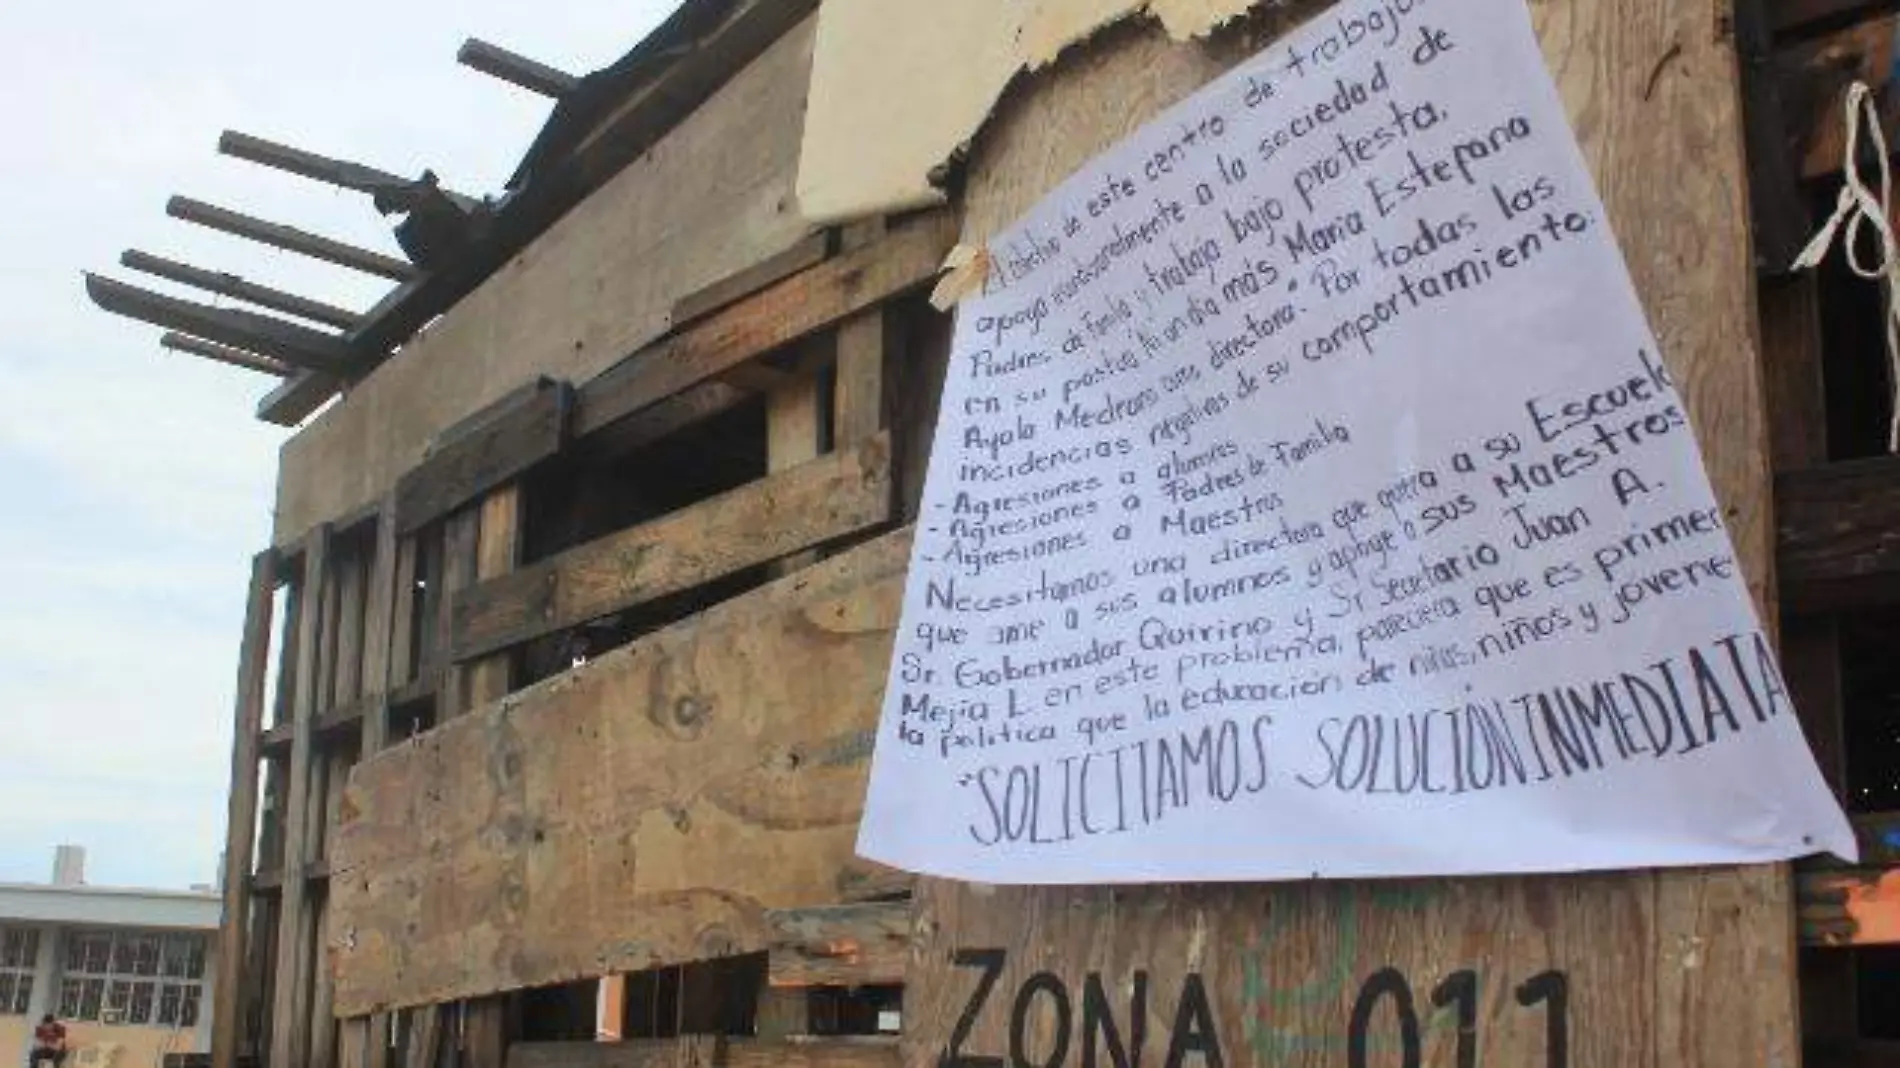 El colectivo de este centro de trabajo
apoya incondicionalmente a la sociedad de
Padres de Familia y trabaja bajo protesta.
en su postca ¡Ni un día más María Estefana
Ayala Medrano como directora! Por todas las
incidencias negativas de su comportamiento.
- Agresiones a alumnos
- Agresiones a Padres de Familia
- Agresiones a Maestros
Necesitamos una directora que quiera a su Escuela
que ame a sus alumnos y apoye a sus Maestros
Sr. Gobernador Quirino y Sr Secretario Juan A.
Mejía L en este problema, pareciera que es primer
la política que la educación de niñas, niños y jovene
"SOLICITAMOS SOLUCIÓN INMEDIATA
ZONA 011